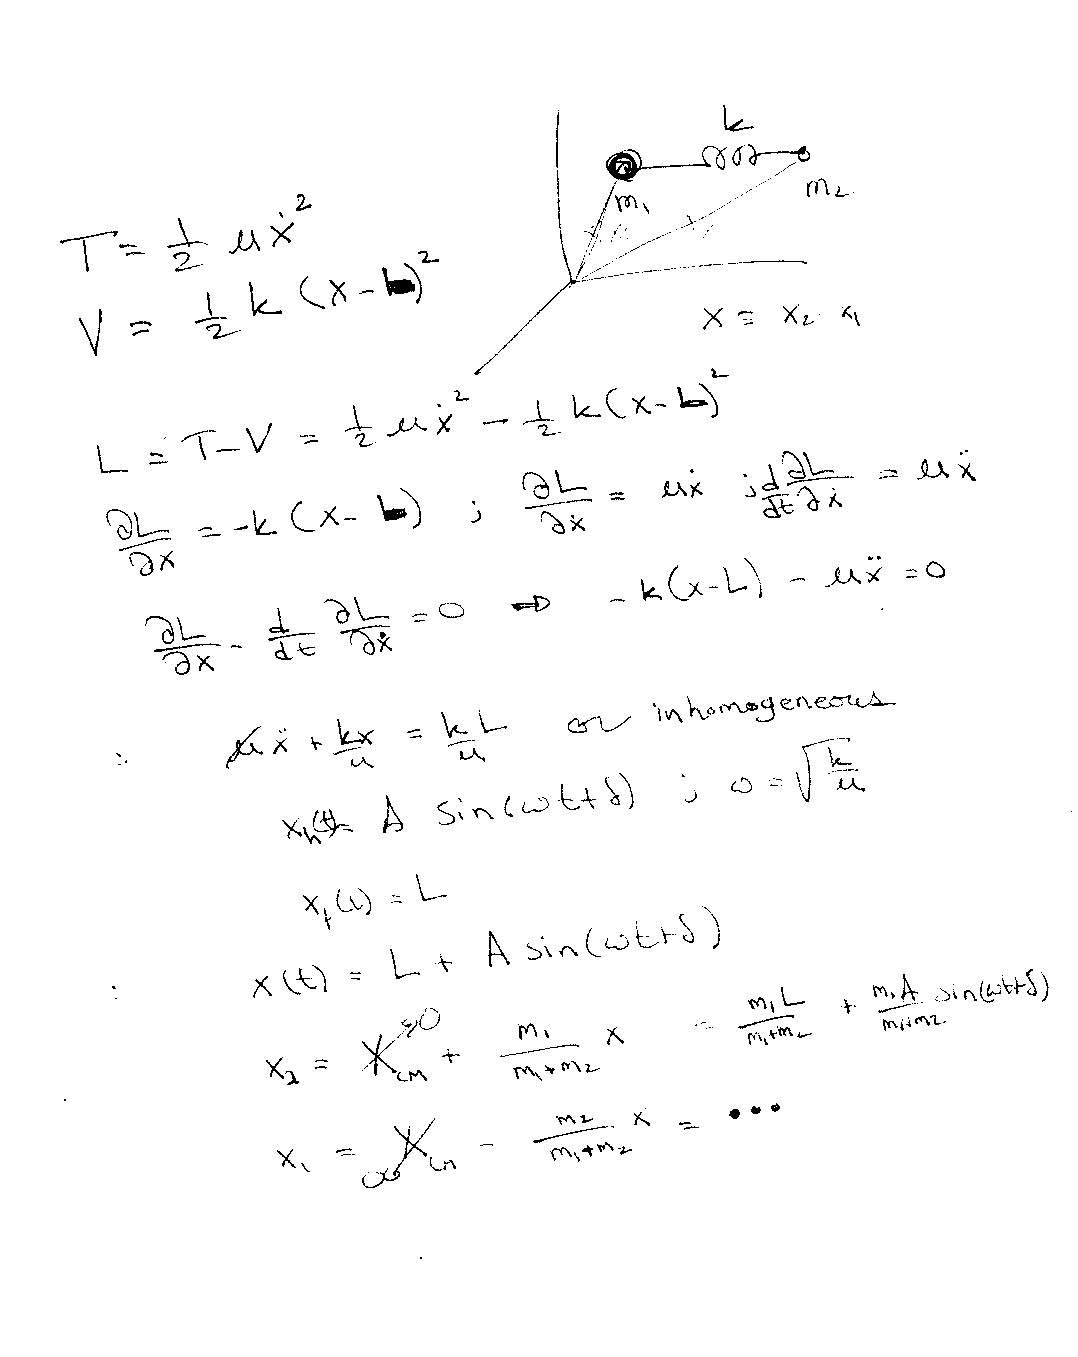 k
m₁
m₂
T = ½ μẋ²
V = ½ k (x-L)²
x ≡ x₂ x₁
L = T-V = ½ μẋ² - ½ k(x-L)²
∂L/∂x = -k (x-L) ; ∂L/∂ẋ = μẋ ; d/dt ∂L/∂ẋ = μẍ
∂L/∂x - d/dt ∂L/∂ẋ = 0 ⇒ -k(x-L) - μẍ = 0
∴ ẍ + kx/μ = kL/μ or inhomogeneous
xₕ(t) = A sin(ωt+δ) ; ω = √(k/μ)
xₚ(t) = L
∴ x(t) = L + A sin(ωt+δ)
x₂ = X_CM →0 + m₁/(m₁+m₂) x = m₁L/(m₁+m₂) + m₁A/(m₁+m₂) sin(ωt+δ)
x₁ = X_CM →0 - m₂/(m₁+m₂) x = •••